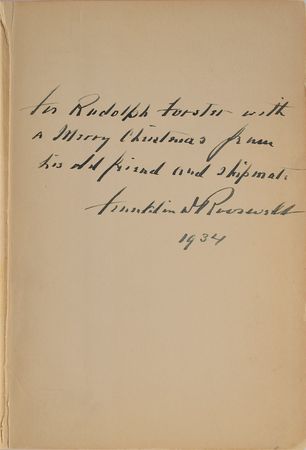 For Rudolph Forster with
a Merry Christmas from
his old friend and shipmate
Franklin D Roosevelt
1934